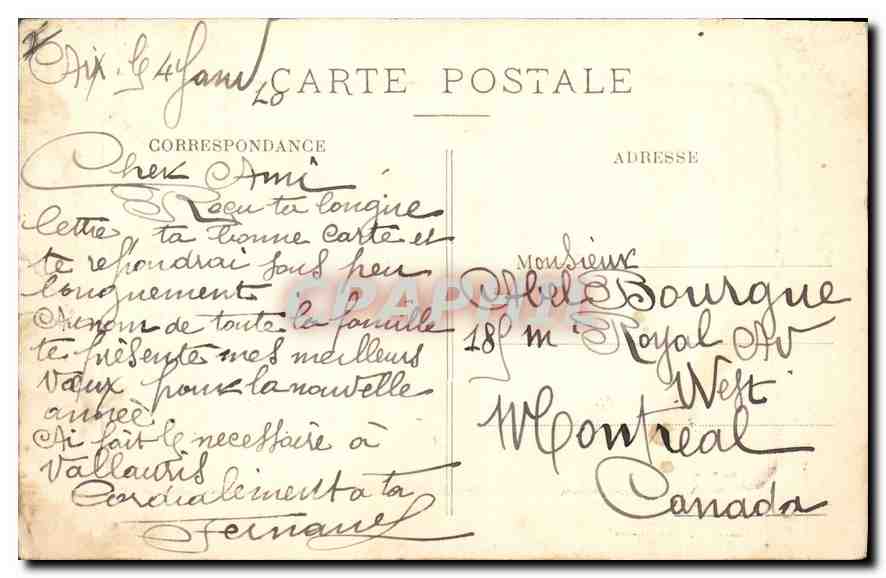 Aix, le 4 Janv 10
CARTE POSTALE
CORRESPONDANCE
ADRESSE
Cher Ami
Reçu ta longue
lettre, ta bonne carte et
te repondrai sous peu
longuement
Au nom de toute la famille
te présente mes meilleurs
vœux pour la nouvelle
année.
Ai fait le necessaire à
Vallauris
Cordialement a ta
Fernand
Monsieur
Abel Bourgue
185 Mt Royal Av
West
Montreal
Canada